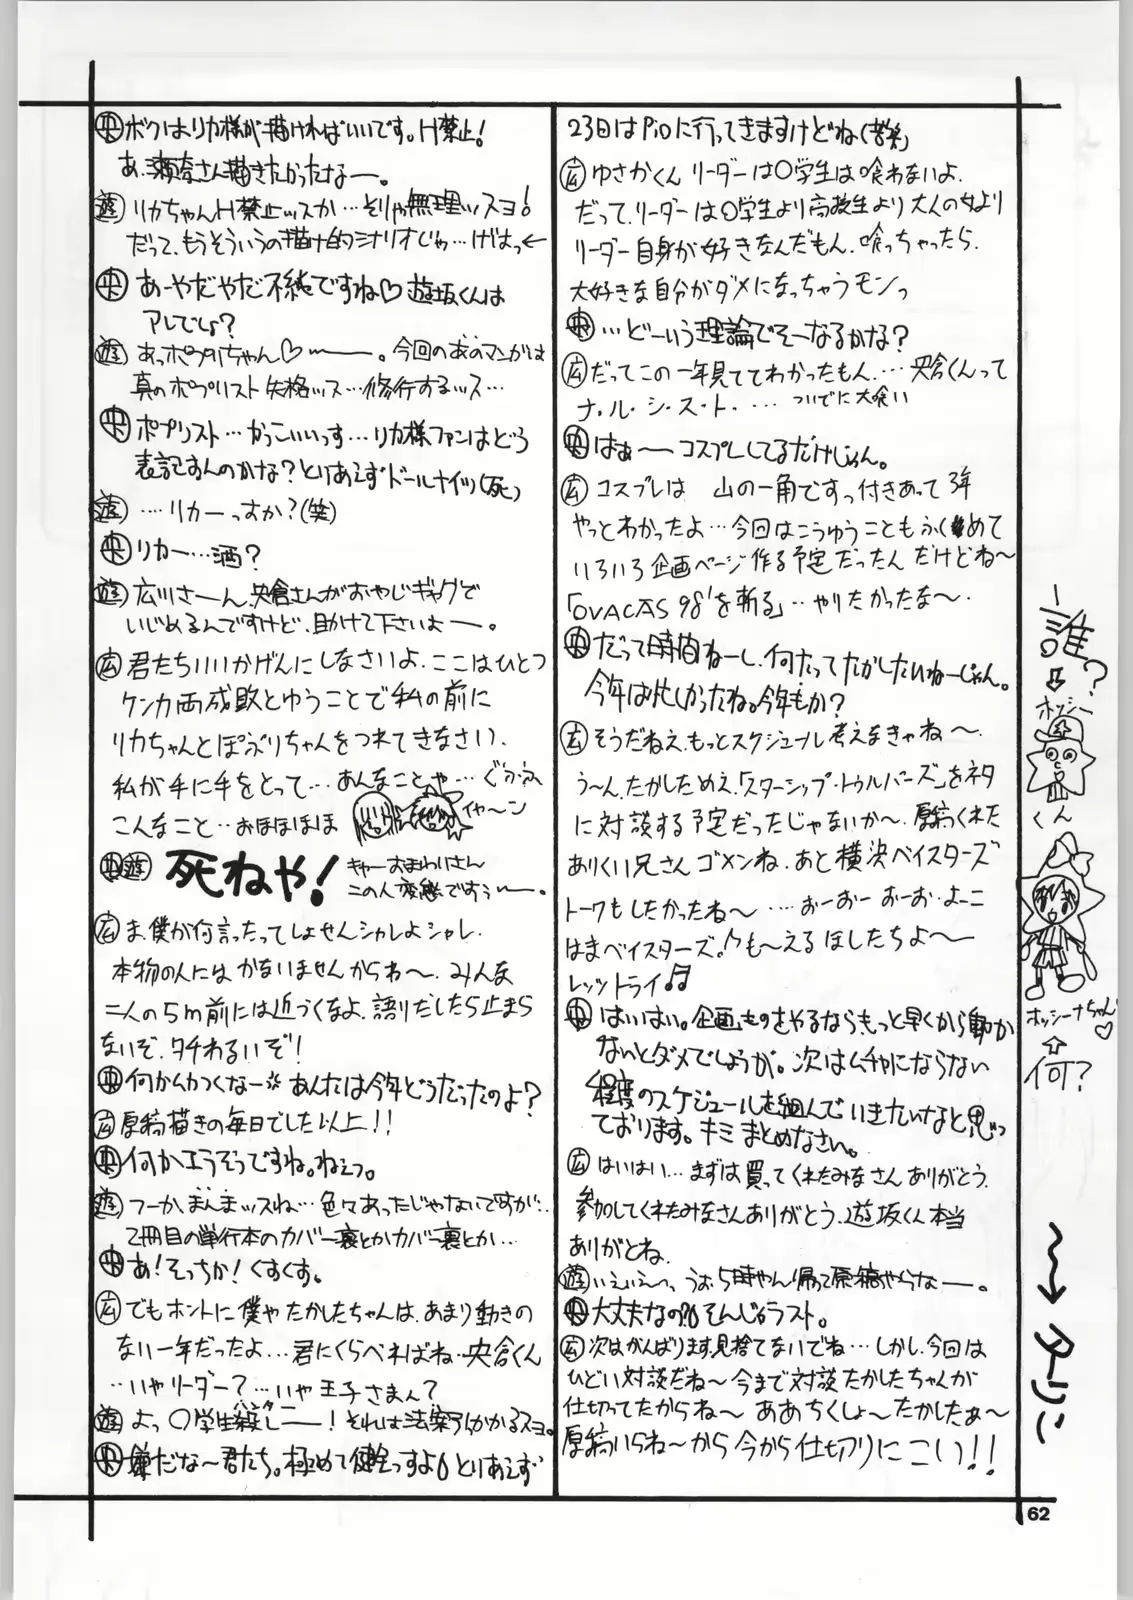 央 ボクはリカ様が描ければいいです。H禁止!
あ、瀬奈さん描きたかったなー。
遊 リカちゃんH禁止ッスか…そりゃ無理ッスヨ!
だって、もうそういうの描け的シナリオじゃ…げはっ←
央 あーやだやだ不純ですね♡遊坂くんは
アレでしょ?
遊 あっポプリちゃん♡〜〜。今回のあのマンガは
真のポプリスト失格ッス…修行するッス…
央 ポプリスト…かっこいいっす…リカ様ファンはどう
表記すんのかな?とりあえずドールナイツ(死)
遊 ‥‥リカーっすか?(笑)
央 リカー…酒?
遊 広川さーん、央倉さんがおやじギャグで
いじめるんですけど、助けて下さいよー。
広 君たちいいかげんにしなさいよ、ここはひとつ
ケンカ両成敗とゆうことで私の前に
リカちゃんとぽぷりちゃんをつれてきなさい、
私が手に手をとって…あんなことや…ぐふふ
こんなこと…おほほほほ
イヤ〜ン
央遊 死ねや!
キャーおまわりさん
この人変態ですぅ〜〜。
広 ま、僕が何言ったってしょせんシャレよシャレ、
本物の人にはかないませんからね〜、みんな
二人の5m前には近づくなよ、語りだしたら止まら
ないぞ、タチわるいぞ!
央 何かムカつくなー あんたは今年どうだったのよ?
広 原稿描きの毎日でした以上!!
央 何かエラそうですね。ねぇっ。
遊 つーか、まんまッスね…色々あったじゃないですか‥
2冊目の単行本のカバー裏とかカバー裏とか…
央 あ!そっちか!くすくす。
広 でもホントに僕やたかしたちゃんは、あまり動きの
ない一年だったよ…君にくらべればね…央倉くん
‥いやリーダー?…いや王子さまぁ?
遊 よっ〇学生殺しー!それは法案アリかかるスヨ。
ハンター
央 嫌だな〜君たち。極めて健全っすよ とりあえず
23日はPioに行ってきますけどね(苦笑)
広 ゆさかくん リーダーは〇学生は喰わないよ、
だって、リーダーは〇学生より高校生より大人の女より
リーダー自身が好きなんだもん、喰っちゃったら、
大好きな自分がダメになっちゃうモンっ
央 …どーいう理論でそーなるかな?
広 だってこの一年見ててわかったもん…、央倉くんって
ナ・ル・シ・ス・ト・… ついでに大喰い
央 はぁ〜 コスプレしてるだけじゃん。
広 コスプレは 山の一角ですっ付きあって3年
やっとわかったよ…今回はこうゆうこともふくめて
いろいろ企画ページ作る予定だったんだけどね〜
「OVACAS 98'を斬る」‥やりたかったな〜、
央 だって時間ねーし、何たってたかしたいねーじゃん。
今年は忙しかったね。今年もか?
広 そうだねえ、もっとスケジュール考えなきゃね〜、
う〜ん、たかしためえ、「スターシップ・トゥルパーズ」をネタ
に対談する予定だったじゃないか〜、原稿くれた
ありくい兄さんゴメンね、あと横浜ベイスターズ
トークもしたかったね〜 …おーおー おーお・よーこ
はまベイスターズ!♪も〜える ほしたちよ〜
レッツトライ♬
央 はいはい。企画ものをやるなら、もっと早くから動か
ないとダメでしょうが。次はムチャにならない
程度のスケジュールを組んでいきたいなと思っ
ております。キミまとめなさい。
広 はいはい…まずは買ってくれたみなさんありがとう、
参加してくれたみなさんありがとう、遊坂くん本当
ありがとね、
遊 いえいえ〜っ うお、5時やん!帰って原稿やらなー。
央 大丈夫なの?6 そんじゃラスト。
広 次はがんばります、見捨てないでね…しかし、今回は
ひどい対談だね〜今まで対談たかしたちゃんが
仕切ってたからね〜 ああちくしょ〜たかしたぁ〜
原稿いらね〜から今から仕切りにこい!!
誰?
⇩
ホッシー
くん
ホッシーナちゃん
♡
⇧
何?
〜→ターリン
62